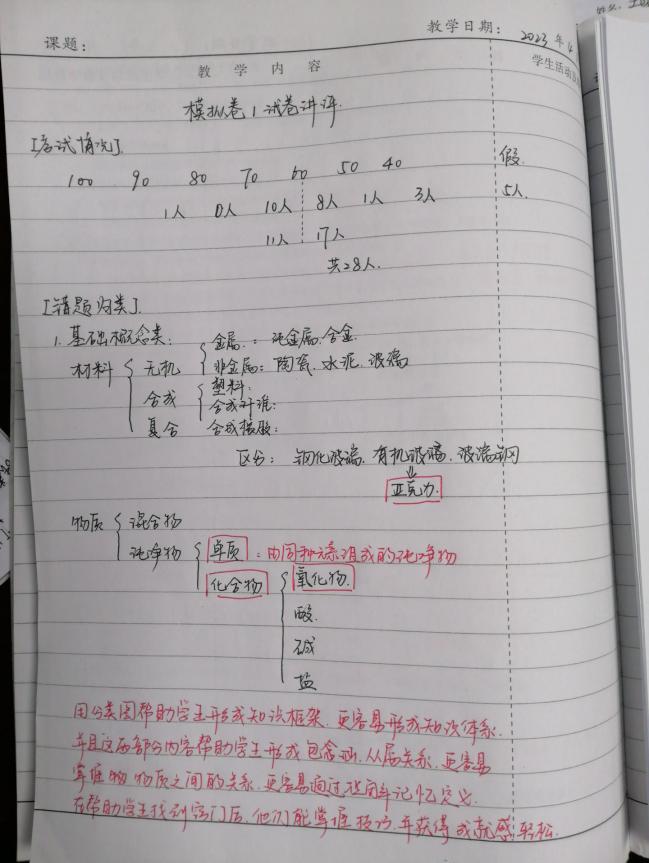 姓名：王
课题：
教学日期：2023年4
教 学 内 容
学生活动
模拟卷1试卷讲评.
[考试情况]
100 90 80 70 60 50 40 假
1人 0人 10人 8人 1人 3人 5人
11人 17人
共28人.
[错题归类].
1.基础概念类：
材料 无机 金属：纯金属.合金
非金属：陶瓷.水泥.玻璃
合成 塑料：
合成纤维：
复合 合成橡胶：
区分：钢化玻璃.有机玻璃.玻璃钢
亚克力.
物质 混合物
纯净物 单质：由同种元素组成的纯净物
化合物 氧化物.
酸.
碱
盐
用分类图帮助学生形成知识框架.更容易形成知识体系.
并且这两部分内容帮助学生形成包含.从属关系.更容易
掌握物质之间的关系.更容易通过记忆定义.
在帮助学生找到窍门后.他们能掌握技巧.并获得成就感.轻松.